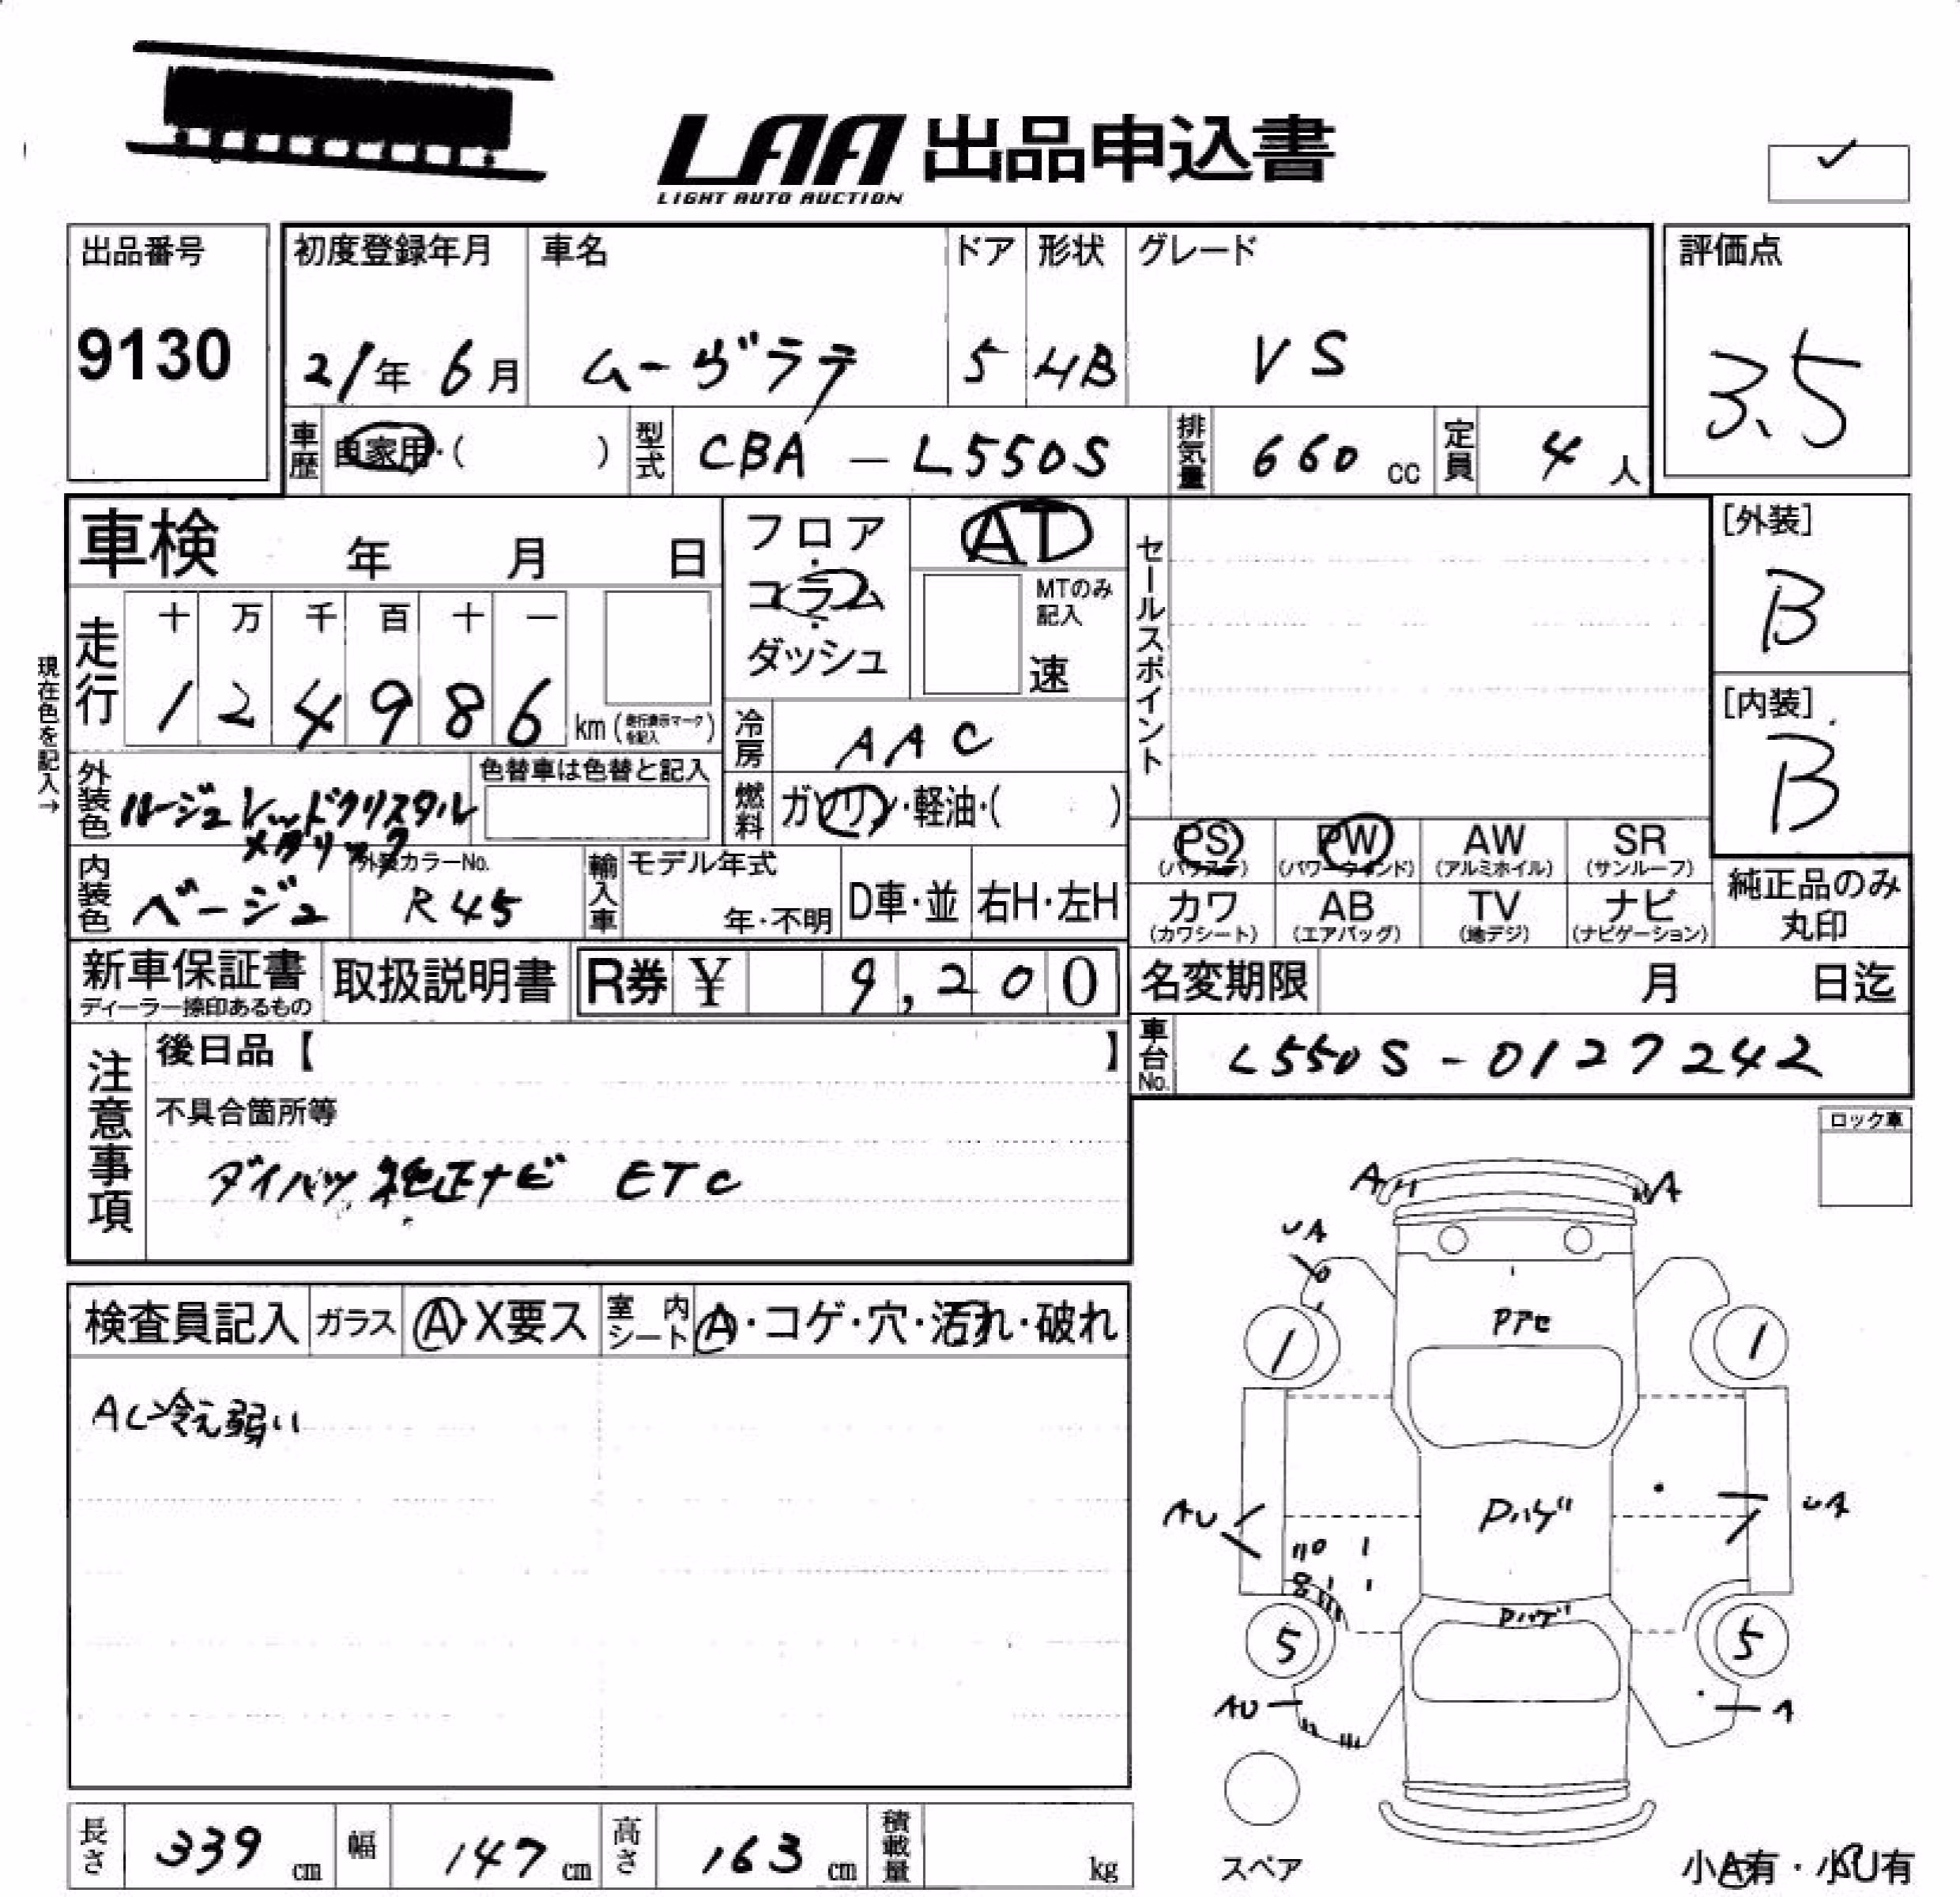 LAA 出品申込書
LIGHT AUTO AUCTION
✓
出品番号
9130
初度登録年月
21年 6月
車名
ムーヴラテ
ドア
5
形状
HB
グレード
VS
評価点
3.5
車歴 自家用・( )
型式 CBA - L550S
排気量 660 cc
定員 4 人
車検 年 月 日
走行
十 万 千 百 十 一
1 2 4 9 8 6 km (走行表示マークを記入)
現在色を記入→
フロア・コラム・ダッシュ
AT
MTのみ記入
速
冷房 AAC
燃料 ガソリン・軽油・( )
セールスポイント
[外装]
B
[内装]
B
外装色 ルージュレッドクリスタルメタリック
色替車は色替と記入
内装色 ベージュ
外装カラーNo.
R45
輸入車
モデル年式
年・不明
D車・並
右H・左H
PS (パワステ)
PW (パワーウィンド)
AW (アルミホイル)
SR (サンルーフ)
カワ (カワシート)
AB (エアバッグ)
TV (地デジ)
ナビ (ナビゲーション)
純正品のみ丸印
新車保証書
ディーラー捺印あるもの
取扱説明書
R券 ¥ 9,200
名変期限 月 日迄
車台No. L550S-0127242
注意事項
後日品【 】
不具合箇所等
ダイハツ純正ナビ ETC
ロック車
検査員記入
ガラス
A・X要ス
室内シート
A・コゲ・穴・汚れ・破れ
AC冷え弱い
A
A
UA
1
1
Pハゲ
AU
UA
Pハゲ
5
5
AU
A
スペア
小A有・小U有
長さ 339 cm
幅 147 cm
高さ 163 cm
積載量 kg